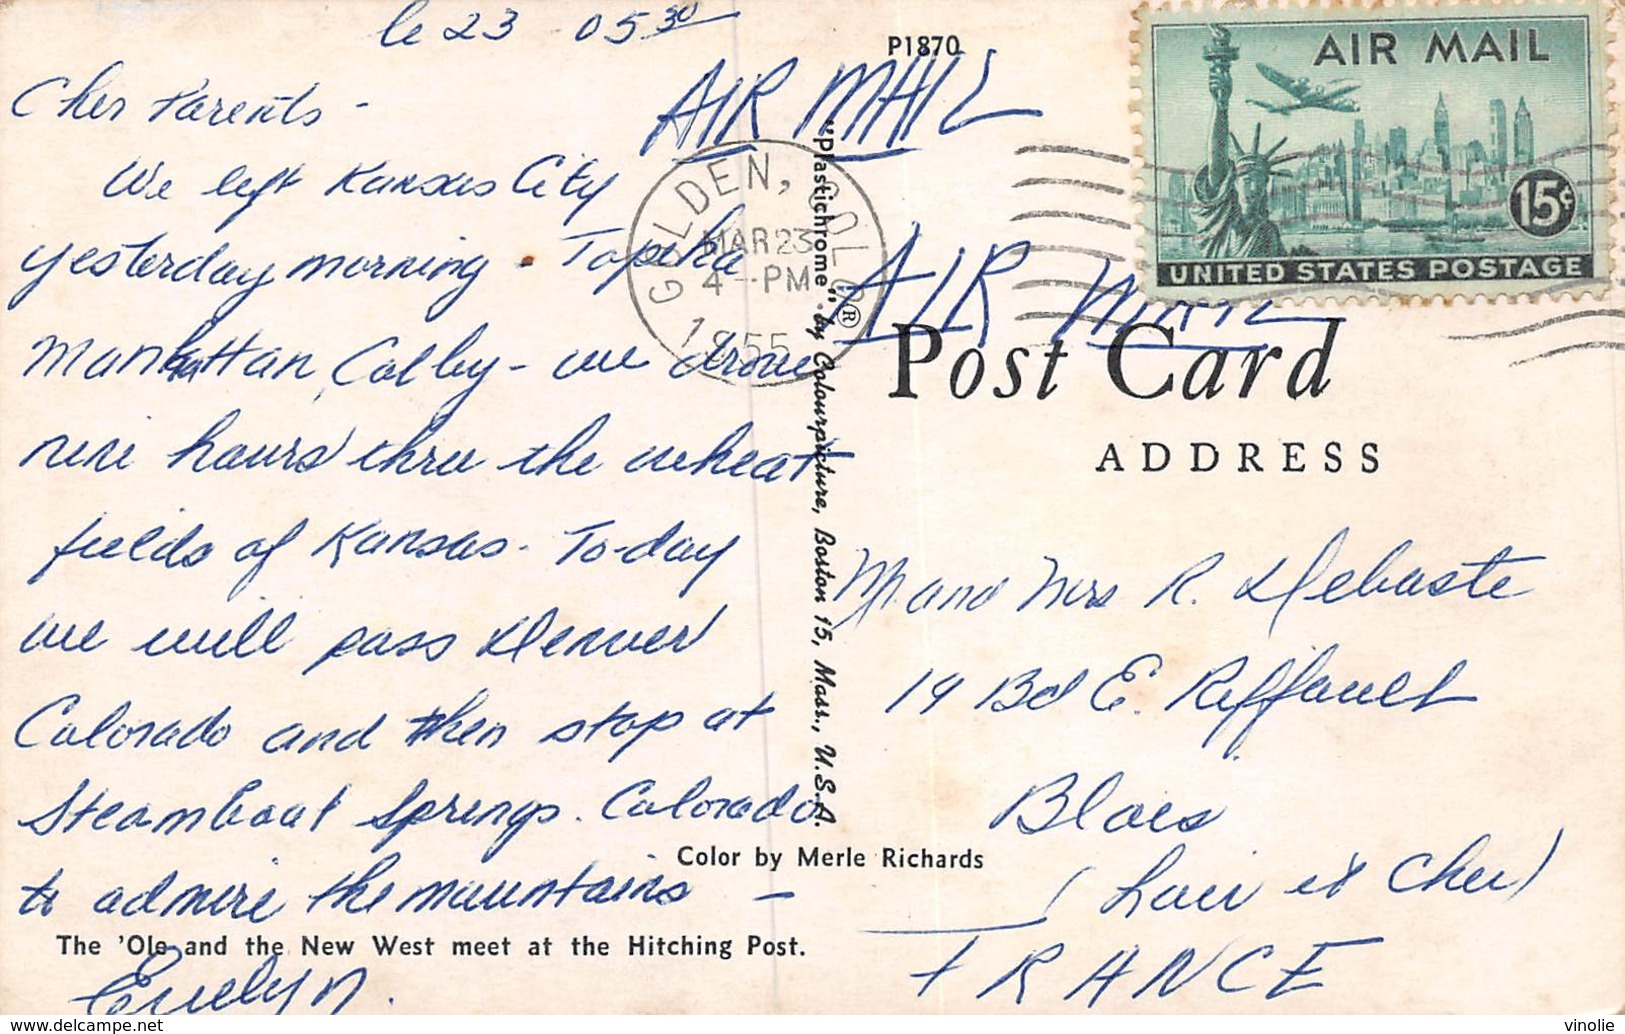 le 23 05 30
Cher Parents -
We left Kansas City
yesterday morning - Topeka
Manhattan, Colby - we drove
nine hours thru the wheat
fields of Kansas. To-day
we will pass Denver
Colorado and then stop at
Steamboat Springs. Colorado
to admire the mountains -
Evelyn.
The 'Ole and the New West meet at the Hitching Post.
Color by Merle Richards
P1870
AIR MAIL
GOLDEN, COLO.
MAR 23
4 - PM
1955
"Plastichrome"® by Colourpicture, Boston 15, Mass., U.S.A.
AIR MAIL
15¢
UNITED STATES POSTAGE
AIR MAIL
Post Card
ADDRESS
M. and Mrs R. Debaste
19 Bd E. Riffault
Blois
(Loir et Cher)
FRANCE
vinolie
www.delcampe.net